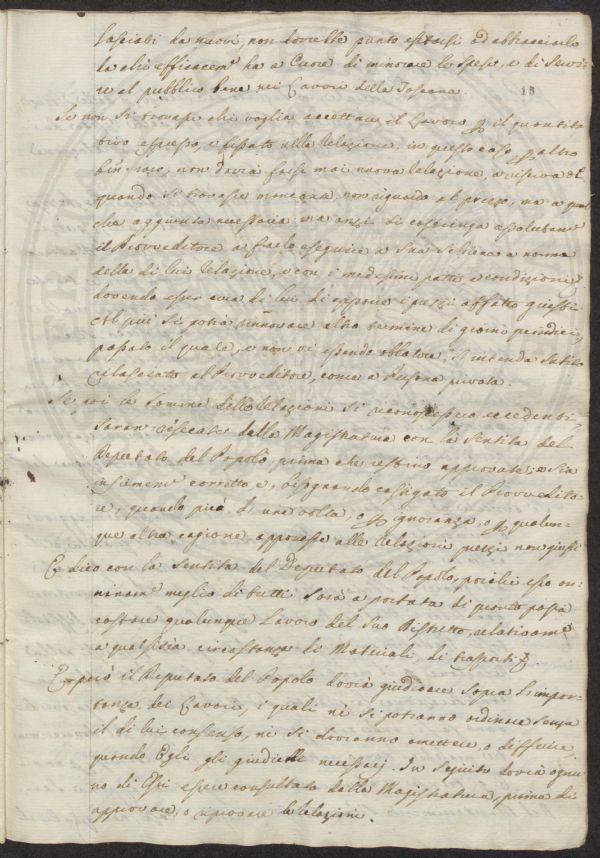 lasciati da nuovi, non dovrebbe punto esitarsi ad abbracciarlo
da chi efficacem.te ha a Cuore di minorare le spese, e di Servi-
re al pubblico bene nei Lavori della Toscana.
18
Se non si trovasse chi voglia accettare il Lavoro p il quantita-
tivo espresso, e fissato nella Relazione, in questo caso p altro
ben raro, non dovrà farsi mai nuova Relazione, a riserva di
quando si trovasse mancante, non riguardo al prezzo, ma a qual
che aggiunta necessaria: ma anzi di costringa assolutam.te
il Provveditore a farlo eseguire a Sua Schiena a norma
della di lui Relazione, e con i medesimi patti e condizioni,
dovendo esser cura di lui di apporre i prezzi affatto giusti.
Al più si potrà rinnovare altro termine di giorni quindici,
passato il quale, e non vi essendo oblatore, s'intenda subito
rilasciato al Provveditore, come a Persona privata.
Se poi le Somme delle Relazioni si riconoscessero eccedenti,
saran resecate dalla Magistratura con la Sentita del
Deputato del Popolo, prima che restino approvate; e sia
insieme corretto e, bisognando castigato il Provvedito-
re, quando più di una volta, o p ignoranza, o p qualun-
que altra cagione apponesse alle Relazioni prezzi non giusti
E dico con la Sentita del Deputato del Popolo, poichè esso on-
ninam.te meglio di tutti sarà a portata di quanto possa
costare qualunque Lavoro del suo Distretto, relativam.te
a qualsisia circostanza di Materiali di trasporti
E però il Deputato del Popolo dovrà giudicare sopra l'impor-
tanza dei Lavori, i quali nè si potranno ordinare senza
il di lui consenso, nè si dovranno omettere, o differire,
quando Egli gli giudichi necessarj. In seguito dovrà ognu-
no di Essi esser consultato dalla Magistratura, prima di
approvare, o riprovare le Relazioni.